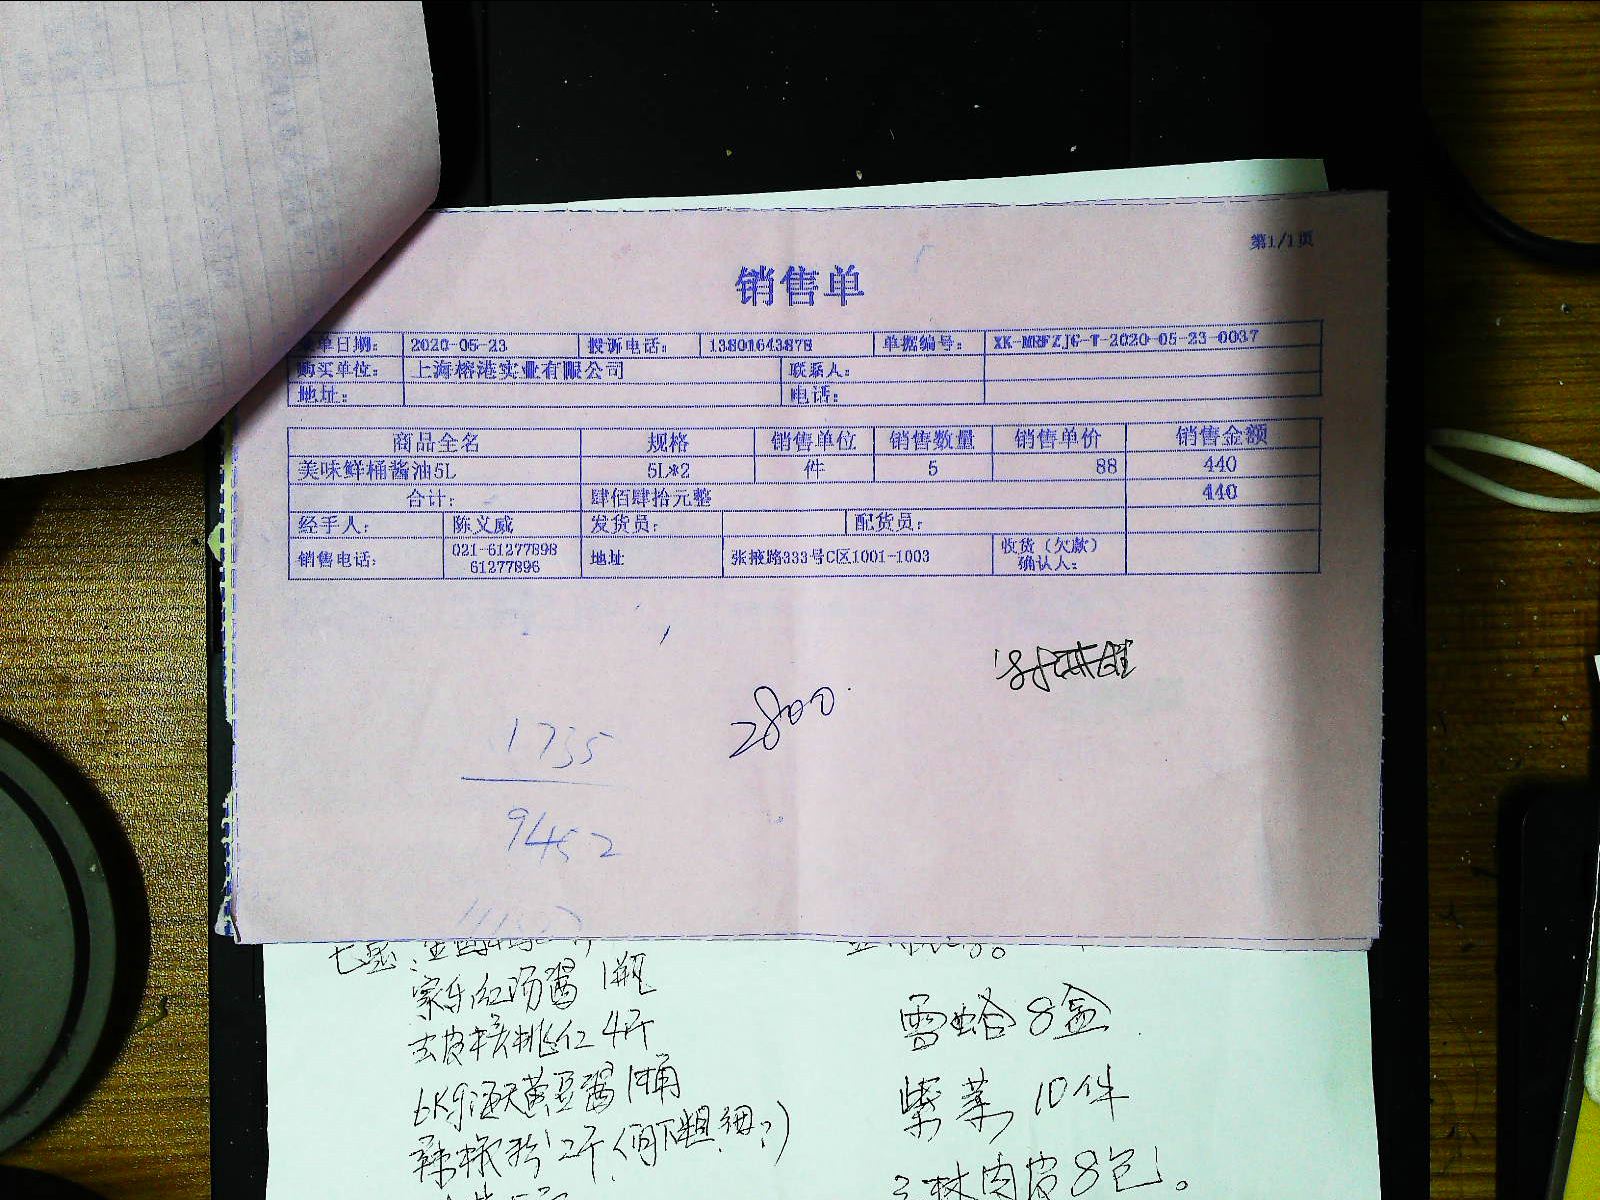 第1/1页
销售单
单日期： 2020-05-23 投诉电话： 13801643878 单据编号： XK-MRFZJG-T-2020-05-23-0037
购买单位： 上海榕港实业有限公司 联系人：
地址： 电话：
商品全名 规格 销售单位 销售数量 销售单价 销售金额
美味鲜桶酱油5L 5L*2 件 5 88 440
合计： 肆佰肆拾元整 440
经手人： 陈义威 发货员： 配货员：
销售电话： 021-61277898 61277896 地址 张掖路333号C区1001-1003 收货（欠款）确认人：
2800
1735
9452
家乐红汤酱 1瓶
去皮核桃仁 4斤
6K9海天黄豆酱 1桶
辣椒粉 2斤
雪蛤 8盒
紫菜 10件
肉皮 8包。